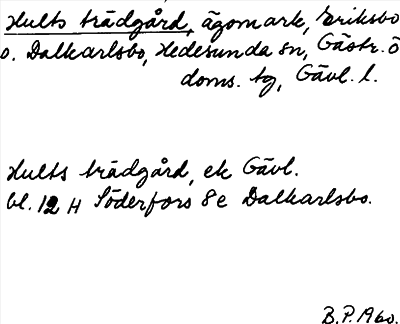 Hults trädgård, ägomark, Eriksbo
o. Dalkarlsbo, Hedesunda sn, Gästr. ö
doms. tg, Gävl. l.
Hults trädgård, ek Gävl.
bl. 12 H Söderfors 8e Dalkarlsbo.
B.P. Abo.